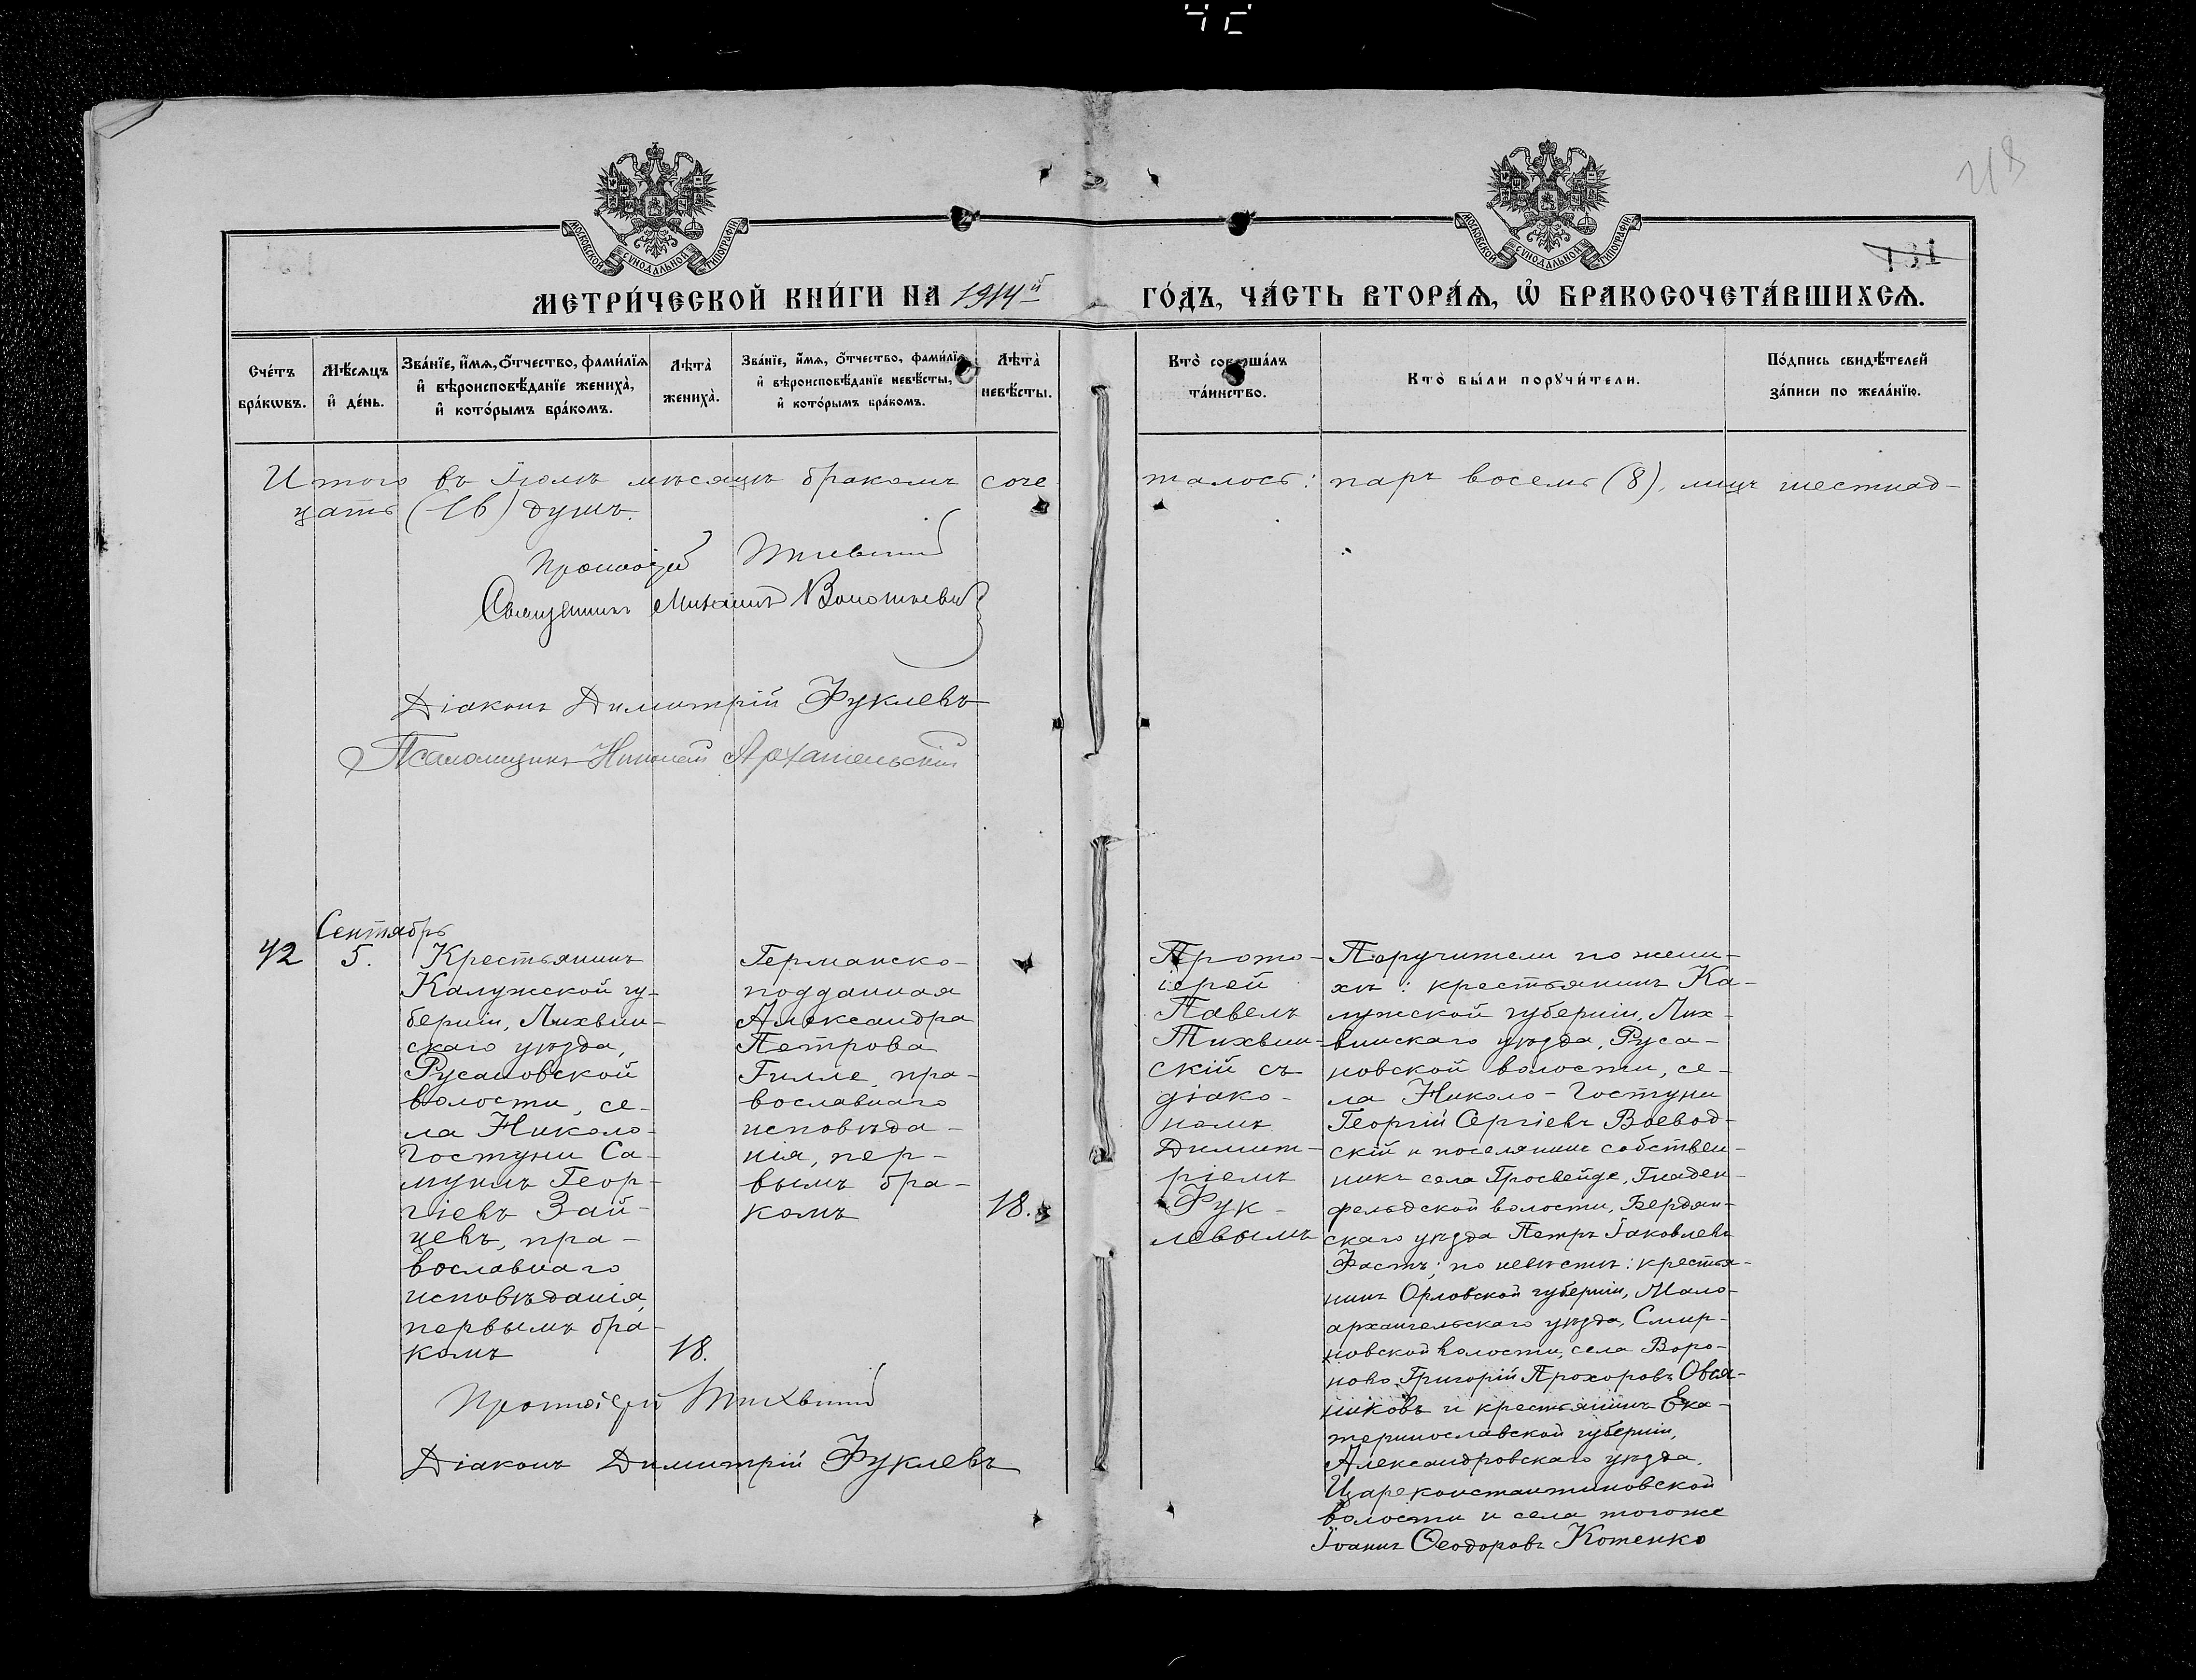 МОСКОВСКОЙ СѴНОДАЛЬНОЙ ТИПОГРАФІИ
МОСКОВСКОЙ СѴНОДАЛЬНОЙ ТИПОГРАФІИ
131
МЕТРИ́ЧЕСКОЙ КНИ́ГИ НА 1914й ГО́ДЪ, ЧА́СТЬ ВТОРА́Ѧ, Ѡ҆ БРАКОСОЧЕТА́ВШИХСѦ.
Сче́тъ
бра́кѡвъ.
Мѣ́сѧцъ
и҆ де́нь.
Зва́нїе, и҆́мѧ, ѻ҆́тчество, фами́лїѧ
и҆ вѣроисповѣ́данїе жениха̀,
и҆ кото́рымъ бра́комъ.
Лѣта̀
жениха̀.
Зва́нїе, и҆́мѧ, ѻ҆́тчество, фами́лїѧ
и҆ вѣроисповѣ́данїе невѣ́сты,
и҆ кото́рымъ бра́комъ.
Лѣта̀
невѣ́сты.
Кто̀ соверша́лъ
та́инство.
Кто̀ бы́ли порꙋчи́тели.
По́дпись свидѣ́телей
за́писи по жела́нїю.
Итого въ Іюлѣ мѣсяцѣ бракомъ соче талось: паръ восемь (8), лицъ шестнад-
цать (16) душъ.
Протоіерей Тихвинскій
Священникъ Михаилъ
Діаконъ Димитрій Фуклевъ
Псаломщикъ Николай Архангельскій
Сентябрь
42
5.
Крестьянинъ
Калужской гу-
берніи, Лихвин-
скаго уѣзда,
Русановской
волости, се-
ла Николо-
Гостуни Са-
муилъ Геор-
гіевъ Зай-
цевъ, пра-
вославнаго
исповѣданія,
первымъ бра-
комъ
18.
Германско-
подданная
Александра
Петрова
Гилле, пра-
вославнаго
исповѣда-
нія, пер-
вымъ бра-
комъ
18.
Прото-
іерей
Павелъ
Тихвин-
скій съ
діако-
номъ
Димит-
ріемъ
Фук-
левымъ
Поручители по жени-
хѣ: крестьянинъ Ка-
лужской губерніи, Лих-
винскаго уѣзда, Руса-
новской волости, се-
ла Николо-Гостуни
Георгій Сергіевъ Воевод-
скій и поселянинъ собствен-
никъ села Просвейде, Гнаден-
фельдской волости, Бердян-
скаго уѣзда Петръ Іаковлевъ
Фастъ; по невѣстѣ: крестья-
нинъ Орловской губерніи, Мало-
архангельскаго уѣзда, Смир-
новской волости, села Воро-
ново Григорій Прохоровъ Овся-
никовъ и крестьянинъ Ека-
теринославской губерніи,
Александровскаго уѣзда,
Цареконстантиновской
волости и села тогоже
Іоаннъ Ѳеодоровъ Котенко
Протоіерей Тихвинскій
Діаконъ Димитрій Фуклевъ